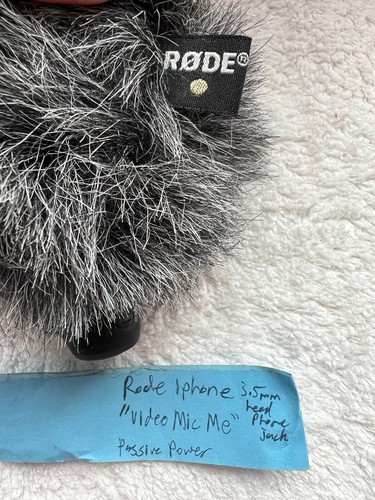 RØDE®
Rode Iphone 3.5mm
head
"Video Mic Me" Phone
Jack
Passive Power